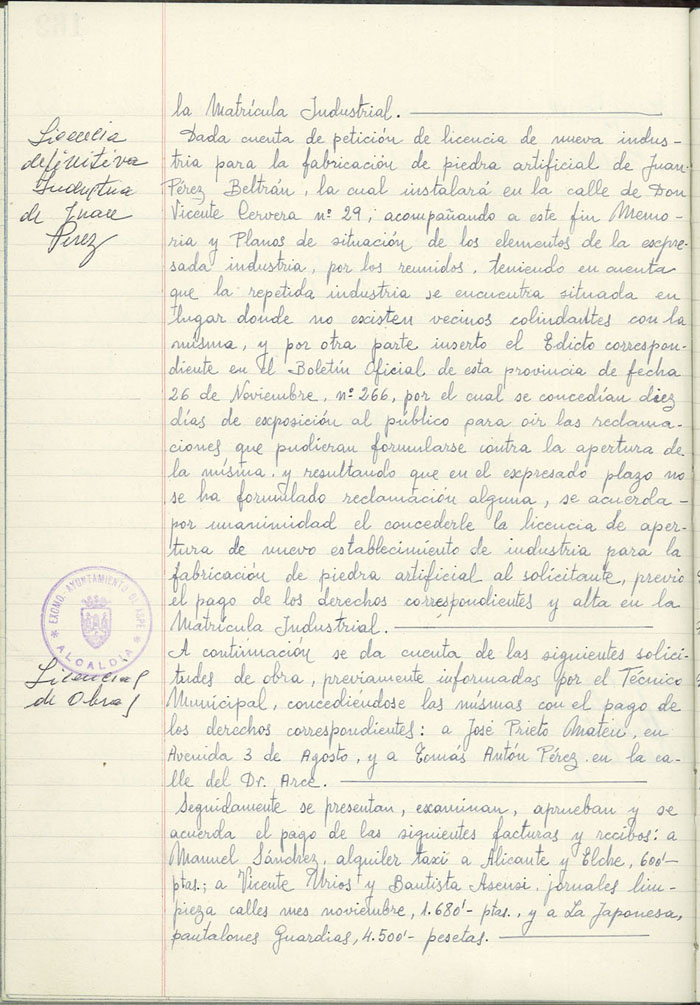 la Matrícula Industrial.
Licencia
definitiva
Industria
de Juan
Perez
Dada cuenta de petición de licencia de nueva indus-
tria para la fabricación de piedra artificial de Juan
Pérez Beltrán, la cual instalará en la calle de Don
Vicente Cervera nº 29; acompañando a este fin Memo-
ria y Planos de situación de los elementos de la expre-
sada industria, por los reunidos, teniendo en cuenta
que la repetida industria se encuentra situada en
lugar donde no existen vecinos colindantes con la
misma, y por otra parte inserto el Edicto correspon-
diente en el Boletín Oficial de esta provincia de fecha
26 de Noviembre, nº 266, por el cual se concedían diez
días de exposición al público para oir las reclama-
ciones que pudieran formularse contra la apertura de
la misma, y resultando que en el expresado plazo no
se ha formulado reclamación alguna, se acuerda-
por unanimidad el concederle la licencia de aper-
tura de nuevo establecimiento de industria para la
fabricación de piedra artificial al solicitante, previo
el pago de los derechos correspondientes y alta en la
Matrícula Industrial.
EXCMO. AYUNTAMIENTO DE ASPE
* ALCALDIA *
Licencias
de Obras
A continuación se da cuenta de las siguientes solici-
tudes de obra, previamente informadas por el Técnico
Municipal, concediéndose las mismas con el pago de
los derechos correspondientes: a José Prieto Mateu, en
Avenida 3 de Agosto, y a Tomás Antón Pérez en la ca-
lle del Dr. Arce.
Seguidamente se presentan, examinan, aprueban y se
acuerda el pago de las siguientes facturas y recibos: a
Manuel Sánchez, alquiler taxi a Alicante y Elche, 600'-
ptas.; a Vicente Urios y Bautista Asensi, jornales lim-
pieza calles mes noviembre, 1.680'- ptas., y a La Japonesa,
pantalones Guardias, 4.500'- pesetas.